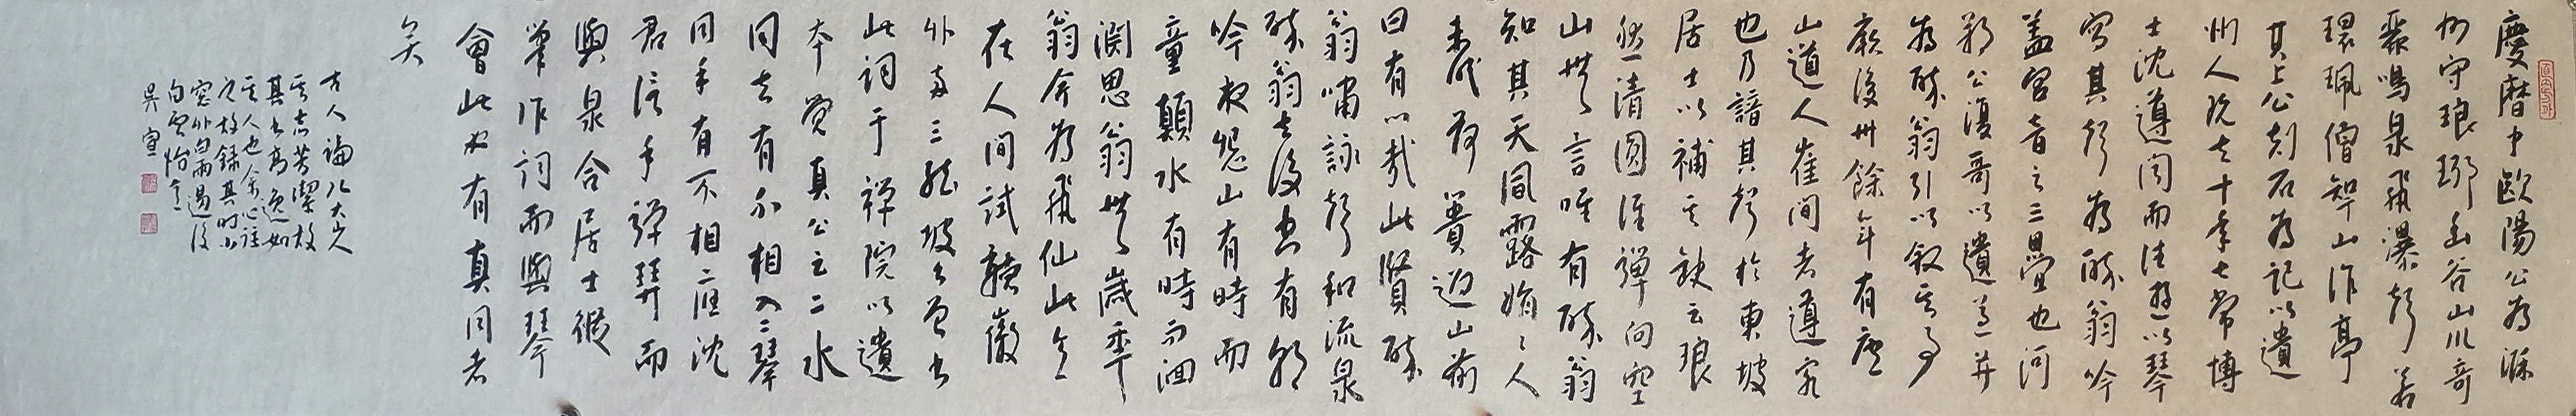 慶曆中歐陽公為滁
州守琅琊幽谷山川奇
麗鳴泉飛瀑聲若
環珮僧智山作亭
其上公刻石為記以遺
州人既去十年太常博
士沈遵聞而往遊以琴
寫其聲為醉翁吟
蓋宮音之三疊也河
朔公復哥以遺遵并
為醉翁引以敘其事
厥後卅餘年有廬
山道人崔閑者遵客
也乃譜其聲於東坡
居士以補其缺云琅
然清圓誰彈向空
山無言唯有醉翁
知其天風露娟〻人
未眠荷蕢過山前
曰有心哉此賢醉
翁嘯詠聲和流泉
醉翁去後空有朝
吟夜怨山有時而
童顛水有時而洄
淵思翁無歲年
翁今為飛仙此意
在人間試聽徽
外兩三絃坡公曾書
此詞于禪院以遺
本覺真公云二水
同去有不相入二琴
同手有不相應沈
君信手彈琴而
與泉合居士縱
筆作詞而與琴
會此必有真同者
矣
古人論八大山人
其志芳潔故
其書高逸如
其人也余心註
久故錄其時小
窗外白雨過後
向雲怡意
吳宣